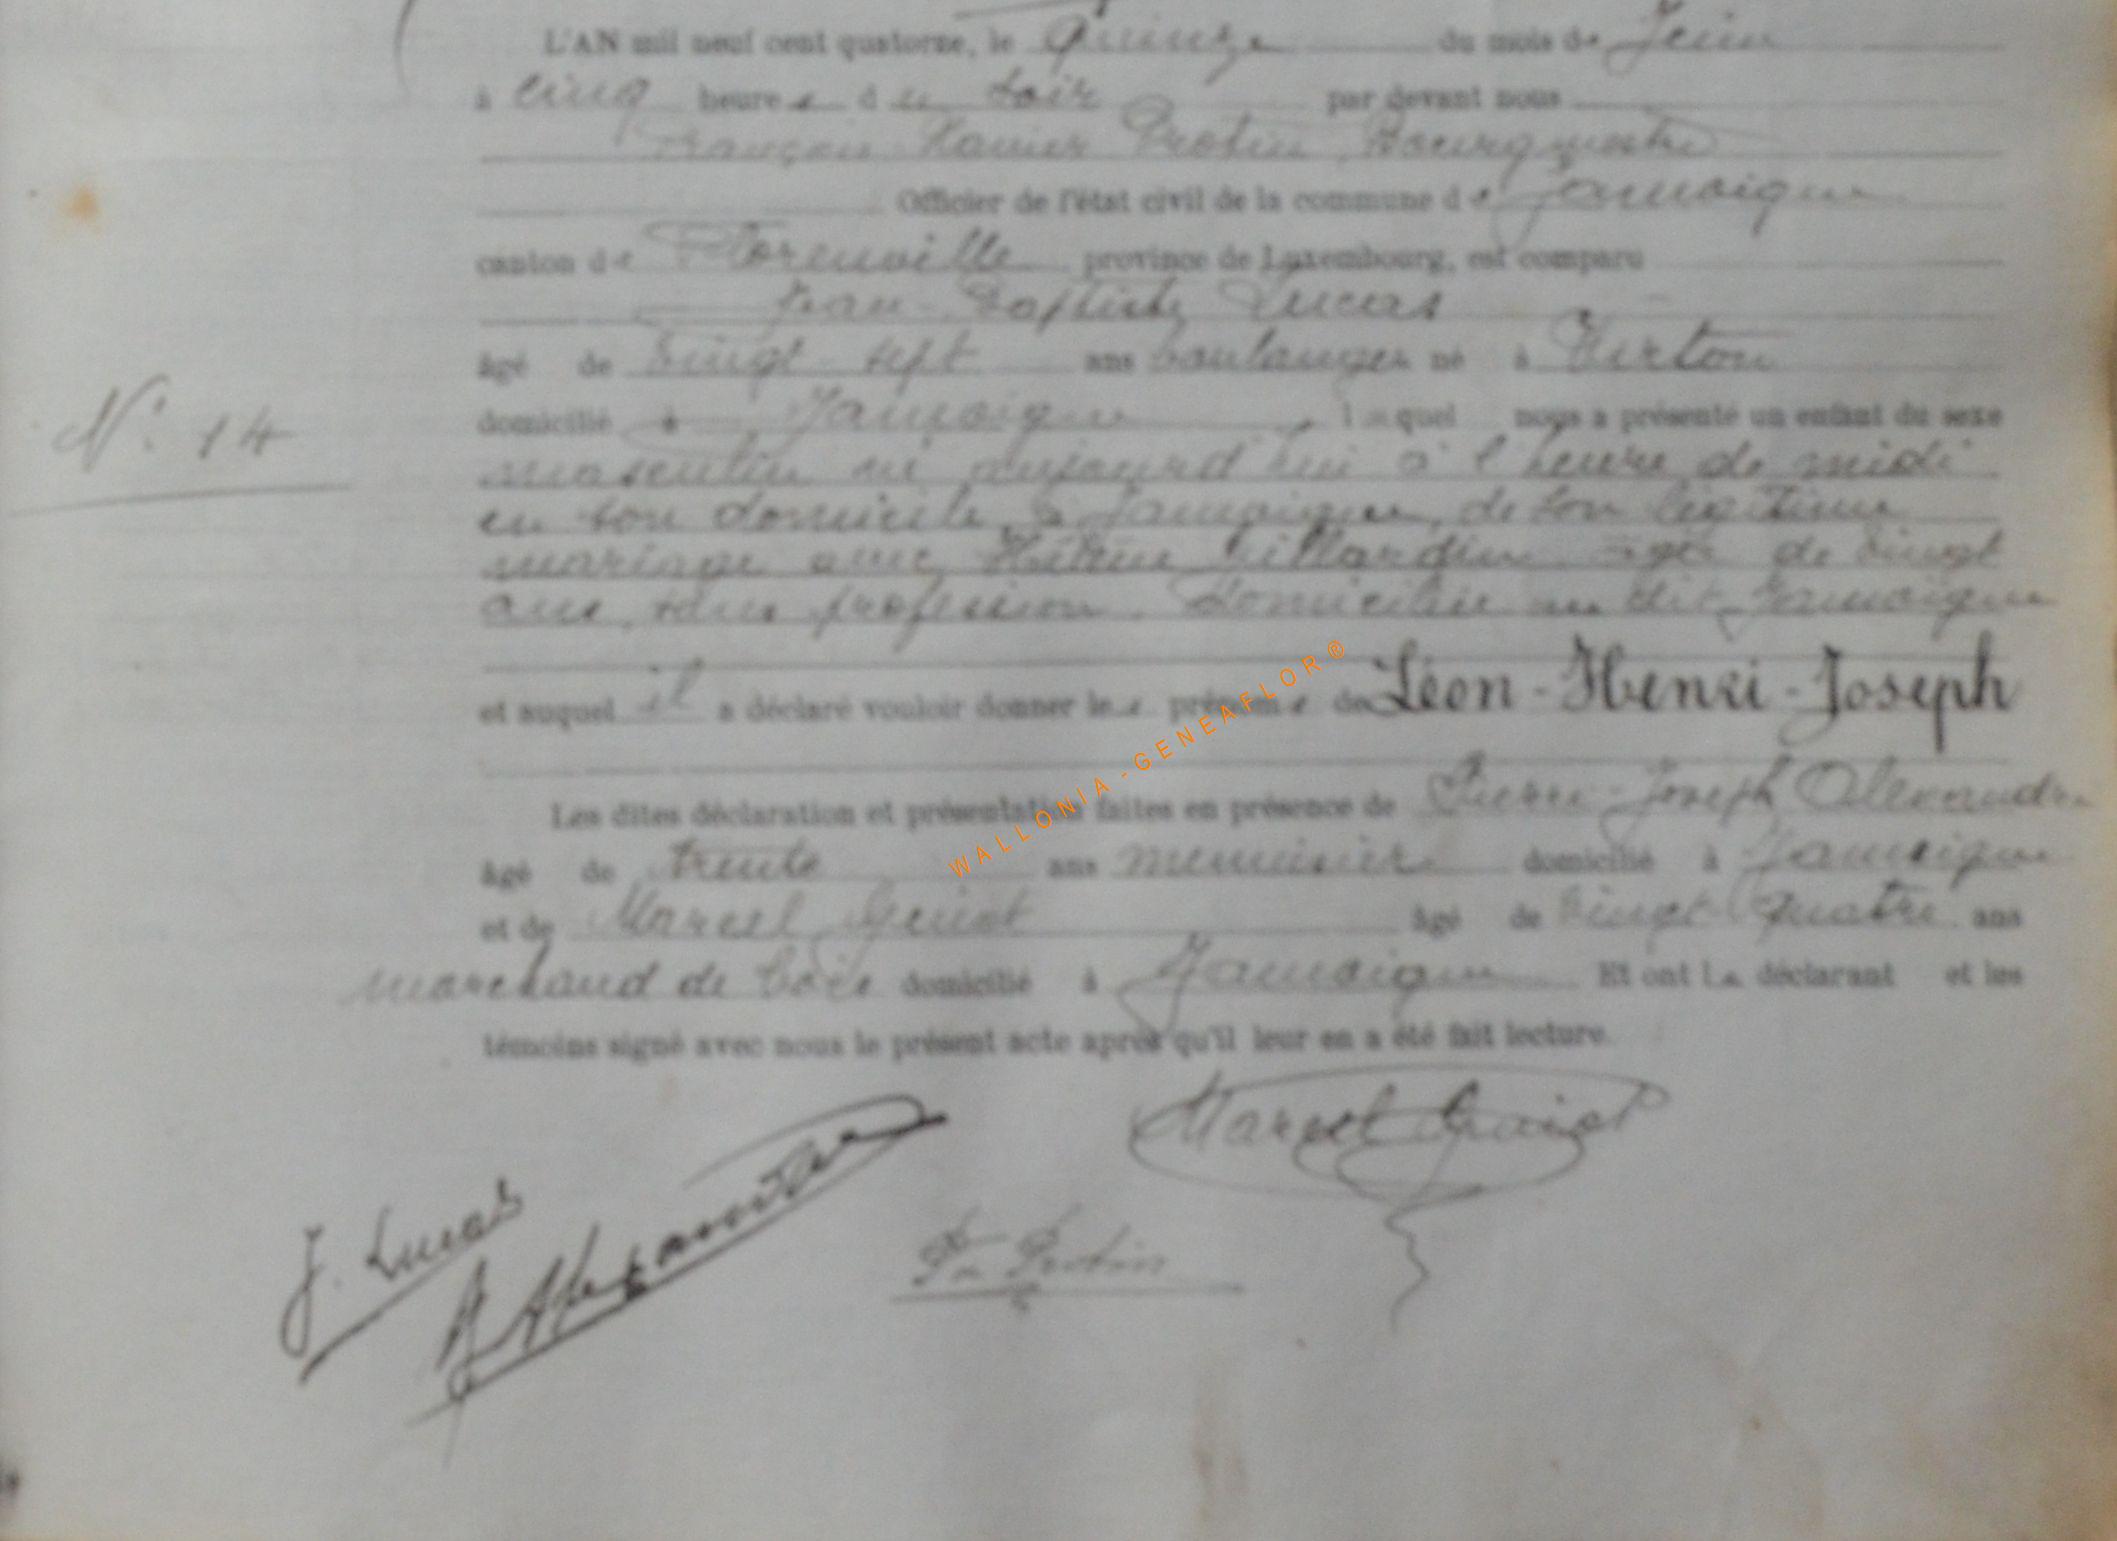 L'AN mil neuf cent quatorze, le Quinze du mois de Juin
à cinq heures du soir par devant nous
François Xavier Protin, Bourgmestre
Officier de l'état civil de la commune de Jamoigne
canton de Florenville province de Luxembourg, est comparu
Jean-Baptiste Lucas
âgé de vingt sept ans boulanger né à Virton
domicilié à Jamoigne, lequel nous a présenté un enfant du sexe
N° 14
masculin né aujourd'hui à l'heure de midi
en son domicile à Jamoigne, de son légitime
mariage avec Hélène âgée de vingt
ans, sans profession, domiciliée au dit Jamoigne
et auquel il a déclaré vouloir donner les prénoms de Léon-Henri-Joseph
WALLONIA-GENEAFLOR®
Les dites déclaration et présentation faites en présence de Pierre-Joseph Alexandre
âgé de trente ans menuisier domicilié à Jamoigne
et de Marcel Guiot âgé de vingt quatre ans
marchand de bois domicilié à Jamoigne Et ont le déclarant et les
témoins signé avec nous le présent acte après qu'il leur en a été fait lecture.
Marcel Guiot
J. Lucas
Alexandre
Protin